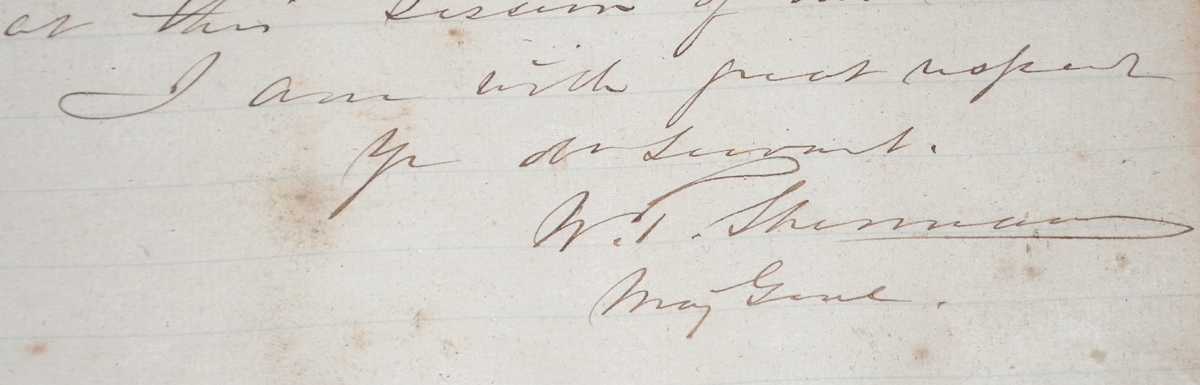 at this session of
I am with great respect
Yr ob Servant.
W. T. Sherman
Maj Genl.